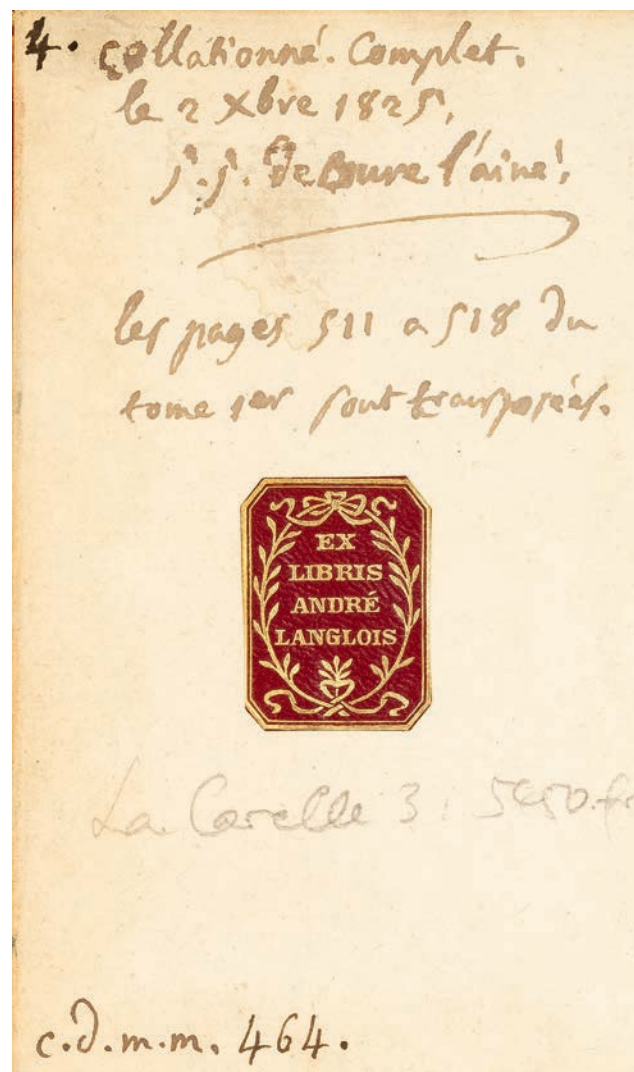 4. collationné. Complet.
le 2 Xbre 1825,
j.j. De Bure l'ainé,
les pages 511 a 518 du
tome 1er sont transposées.
EX
LIBRIS
ANDRÉ
LANGLOIS
La Carelle 3 : 5450.fr
c.d.m.m. 464.